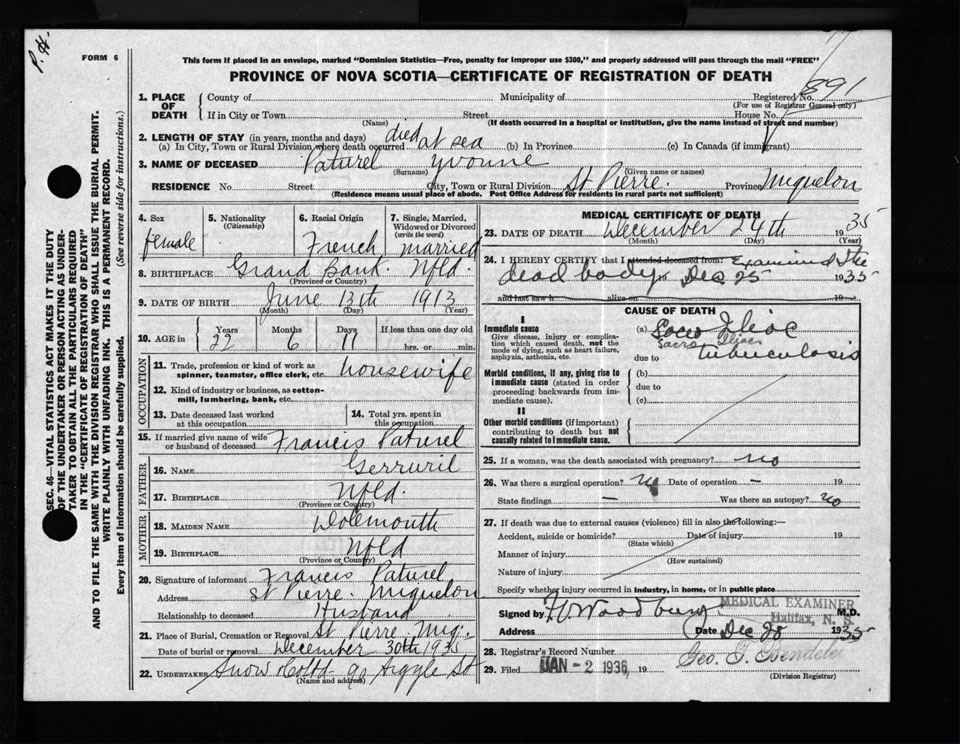 P. H.
FORM 6
This form if placed in an envelope, marked "Dominion Statistics—Free, penalty for improper use $300," and properly addressed will pass through the mail "FREE"
PROVINCE OF NOVA SCOTIA—CERTIFICATE OF REGISTRATION OF DEATH
SEC. 46—VITAL STATISTICS ACT MAKES IT THE DUTY
OF THE UNDERTAKER OR PERSON ACTING AS UNDER-
TAKER TO OBTAIN ALL THE PARTICULARS REQUIRED
IN THE "CERTIFICATE OF REGISTRATION OF DEATH"
AND TO FILE THE SAME WITH THE DIVISION REGISTRAR WHO SHALL ISSUE THE BURIAL PERMIT.
WRITE PLAINLY WITH UNFADING INK. THIS IS A PERMANENT RECORD.
Every item of information should be carefully supplied. (See reverse side for instructions.)
1. PLACE OF DEATH County of Municipality of Registered No. 891
(For use of Registrar General only)
If in City or Town Street House No.
(Name) (If death occurred in a hospital or institution, give the name instead of street and number)
2. LENGTH OF STAY (in years, months and days)
(a) In City, Town or Rural Division where death occurred died at sea (b) In Province (c) In Canada (if immigrant)
3. NAME OF DECEASED Paturel Yvonne
(Surname) (Given name or names)
RESIDENCE No Street City, Town or Rural Division St Pierre. Province Miquelon
(Residence means usual place of abode. Post Office Address for residents in rural parts not sufficient)
4. Sex female
5. Nationality (Citizenship)
6. Racial Origin French
7. Single, Married, Widowed or Divorced (write the word) married
8. BIRTHPLACE Grand Bank. Nfld.
(Province or Country)
9. DATE OF BIRTH June 13th 1913
(Month) (Day) (Year)
10. AGE in Years Months Days If less than one day old
22 6 11 hrs. or min.
OCCUPATION
11. Trade, profession or kind of work as spinner, teamster, office clerk, etc. housewife
12. Kind of industry or business, as cotton-mill, lumbering, bank, etc.
13. Date deceased last worked at this occupation
14. Total yrs. spent in this occupation
15. If married give name of wife or husband of deceased Francis Paturel
FATHER
16. NAME
17. BIRTHPLACE Nfld.
(Province or Country)
MOTHER
18. MAIDEN NAME
19. BIRTHPLACE Nfld
(Province or Country)
20. Signature of informant Francis Paturel
Address St Pierre. Miquelon
Relationship to deceased Husband
21. Place of Burial, Cremation or Removal St Pierre Miq.
Date of burial or removal December 30th 1935
22. UNDERTAKER Snow & Co Ltd 90 Argyle St
(Name and address)
MEDICAL CERTIFICATE OF DEATH
23. DATE OF DEATH December 24th 1935
(Month) (Day) (Year)
24. I HEREBY CERTIFY that I attended deceased from: Examined the
dead body Dec 25 1935
and last saw h alive on 19
CAUSE OF DEATH
I
Immediate cause
Give disease, injury or complication which caused death, not the mode of dying, such as heart failure, asphyxia, asthenia, etc.
(a) Sacro Iliac
Sacro Iliac
due to tuberculosis
Morbid conditions, if any, giving rise to immediate cause (stated in order proceeding backwards from immediate cause).
(b)
due to
(c)
II
Other morbid conditions (if important) contributing to death but not causally related to immediate cause.
25. If a woman, was the death associated with pregnancy? no
26. Was there a surgical operation? no Date of operation —
State findings — Was there an autopsy? no
27. If death was due to external causes (violence) fill in also the following:—
Accident, suicide or homicide? Date of injury 19
(State which)
Manner of injury
(How sustained)
Nature of injury
Specify whether injury occurred in industry, in home, or in public place
Signed by M.D.
MEDICAL EXAMINER
Halifax, N. S.
Address Date Dec 28 1935
28. Registrar's Record Number
29. Filed JAN - 2 1936 19
(Division Registrar)